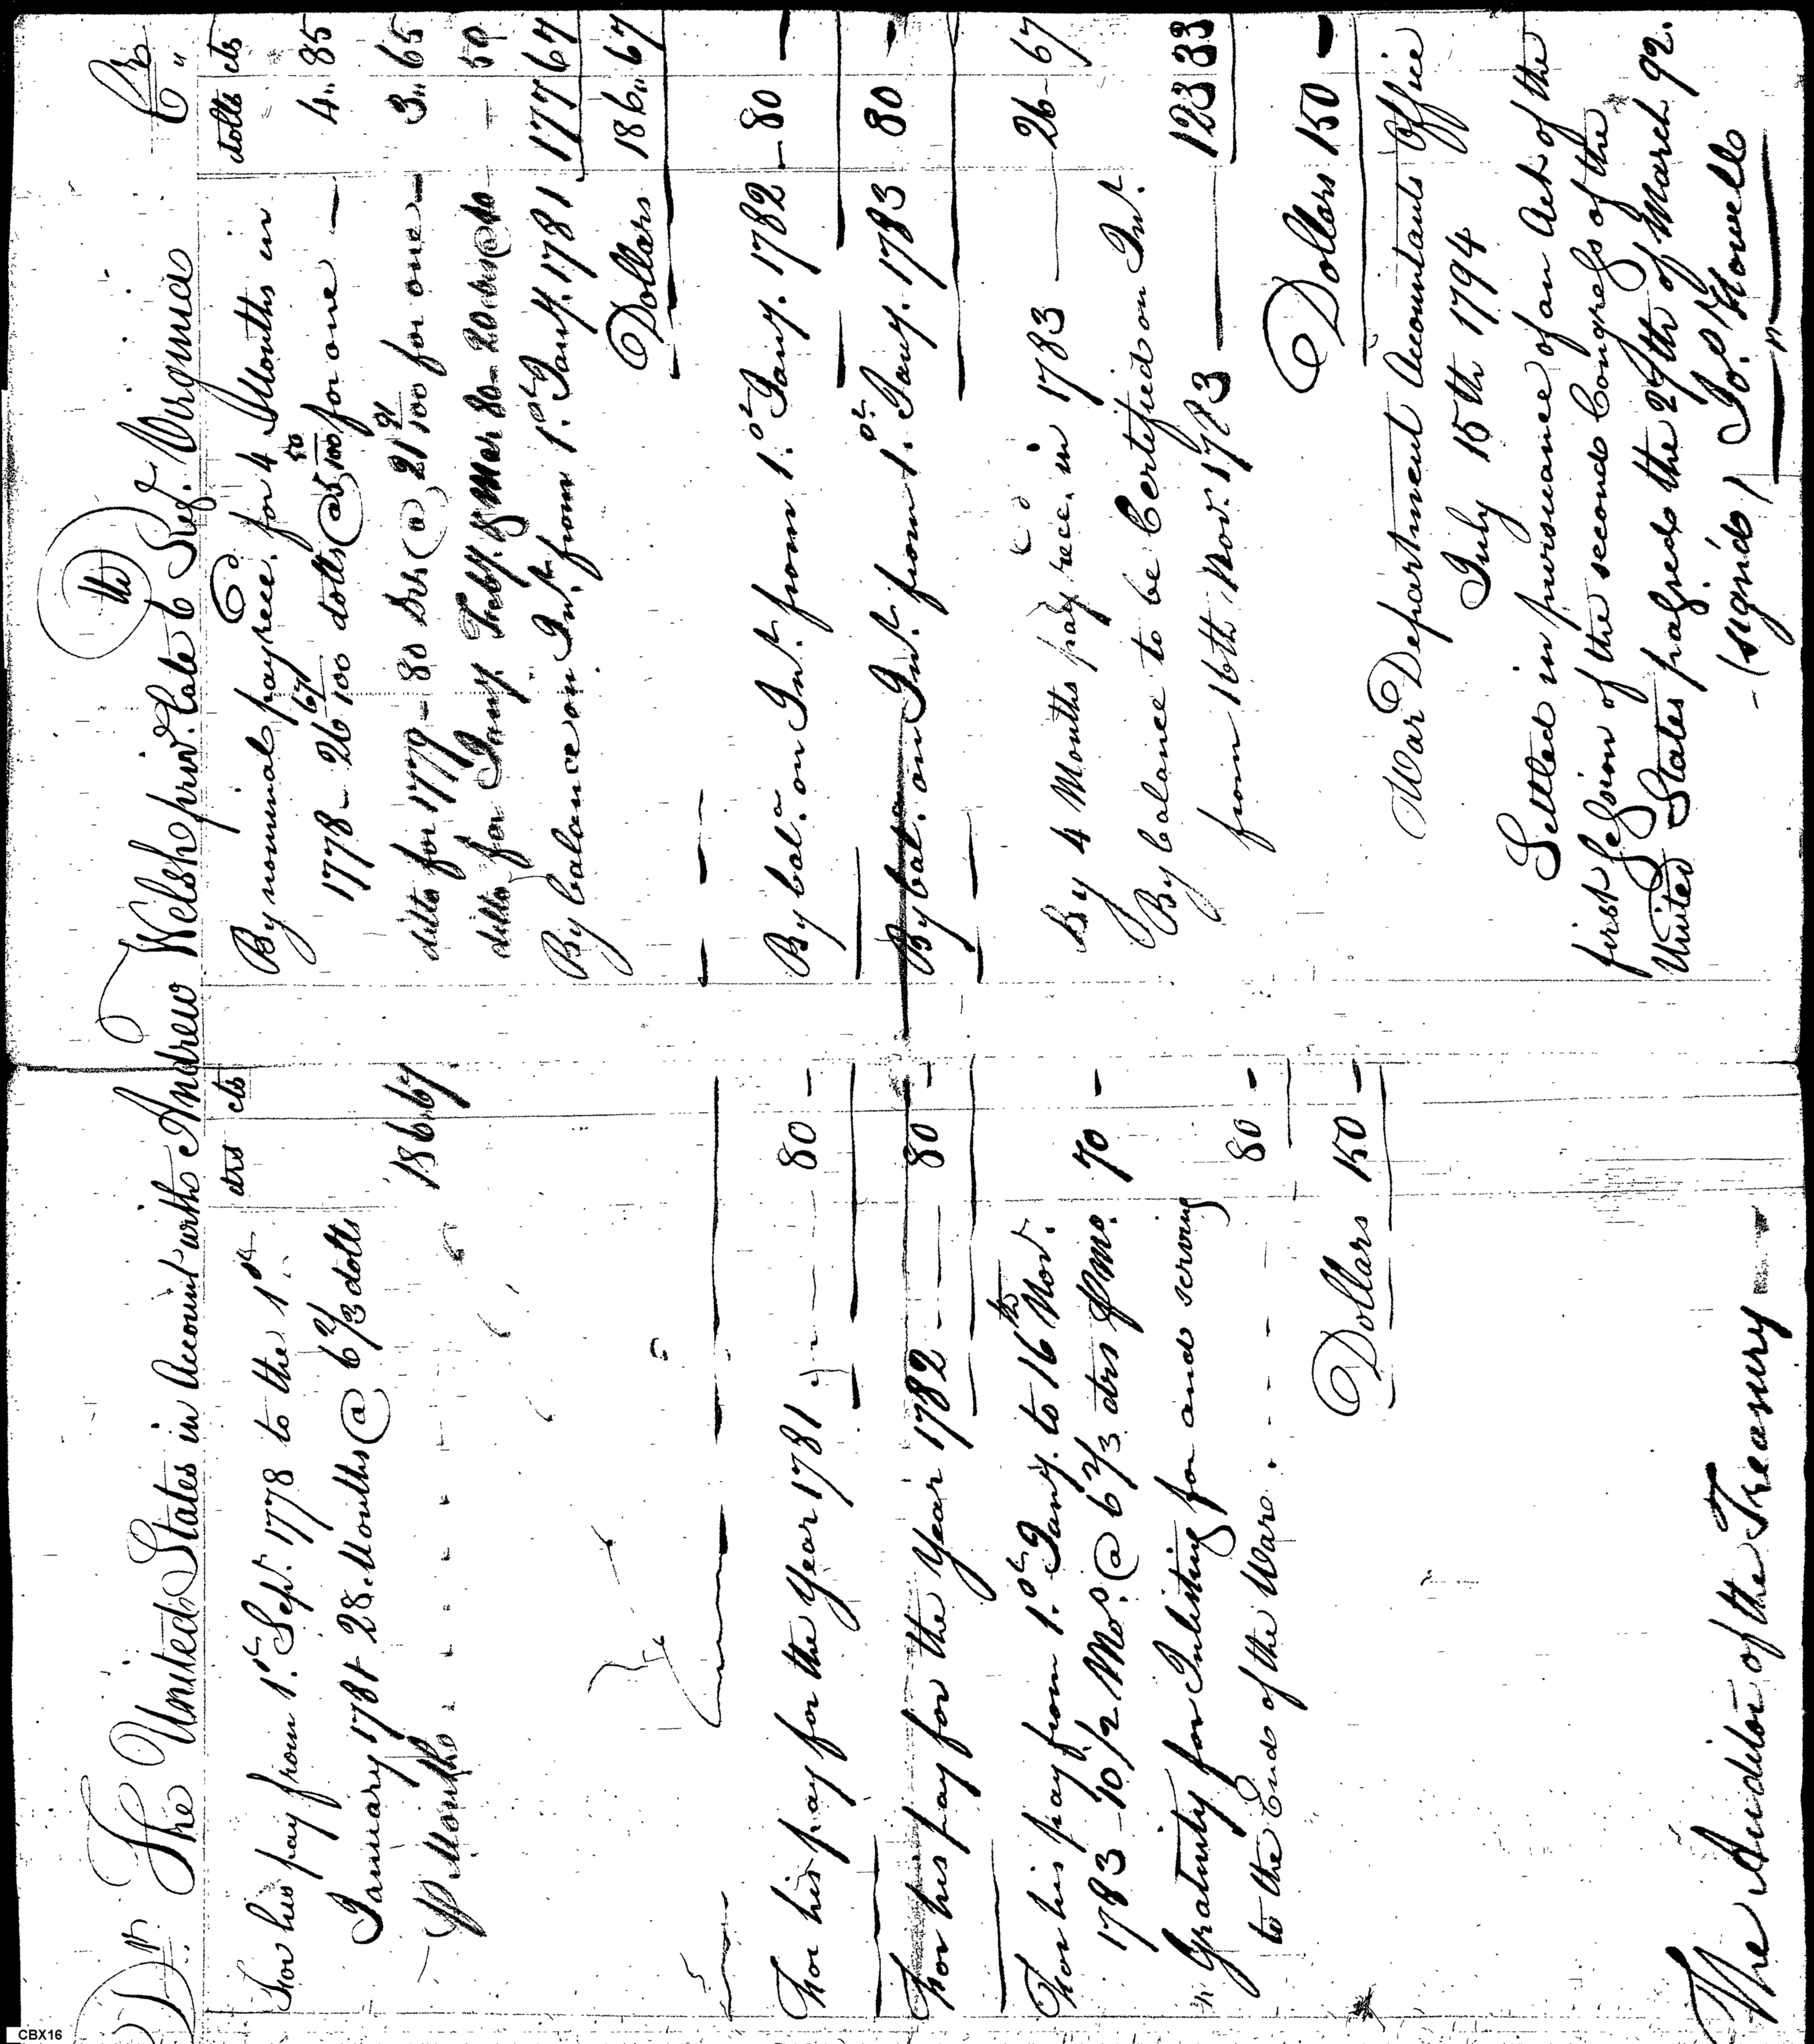 Dr. The United States in Account with Andrew Welsh priv. late 6th Regt. Virginia Cr.
drs cts
For his pay from 1st Sept. 1778 to the 1st
January 1781 28 Months @ 6 2/3 dolls
pr Month 186.67
For his pay for the Year 1781 80 -
For his pay for the Year 1782 80 -
For his pay from 1st Jany. to 16th Nov.
1783 - 10 1/2 Mos. @ 6 2/3 drs pr Mo. 70 -
Gratuity for Inlisting for and serving
to the End of the War 80 -
Dollars 150 -
The Auditor of the Treasury
dolls cts
By nominal pay recd. for 4 Months in
1778 - 26 67/100 dolls @ 5 50/100 for one - 4.. 85
ditto for 1779 - 80 Drs @ 21 91/100 for one - 3.. 65
ditto for Jany. Feby. & Mar 80 - 20 drs @ 40 - 50
By balance on Int. from 1st Jany. 1781 177 67
Dollars 186.. 67
By bal. on Int. from 1st Jany. 1782 - 80 -
By bal. on Int. from 1st Jany. 1783 80 -
By 4 Months pay recd. in 1783 26 - 67
By balance to be Certified on Int.
from 16th Nov. 1783 123 33
Dollars 150 -
War Department Accountants Office
July 15th 1794
Settled in pursuance of an Act of the
first Session of the second Congress of the
United States passed the 27th of March 92.
(signed) Jo. Howell
CBX16